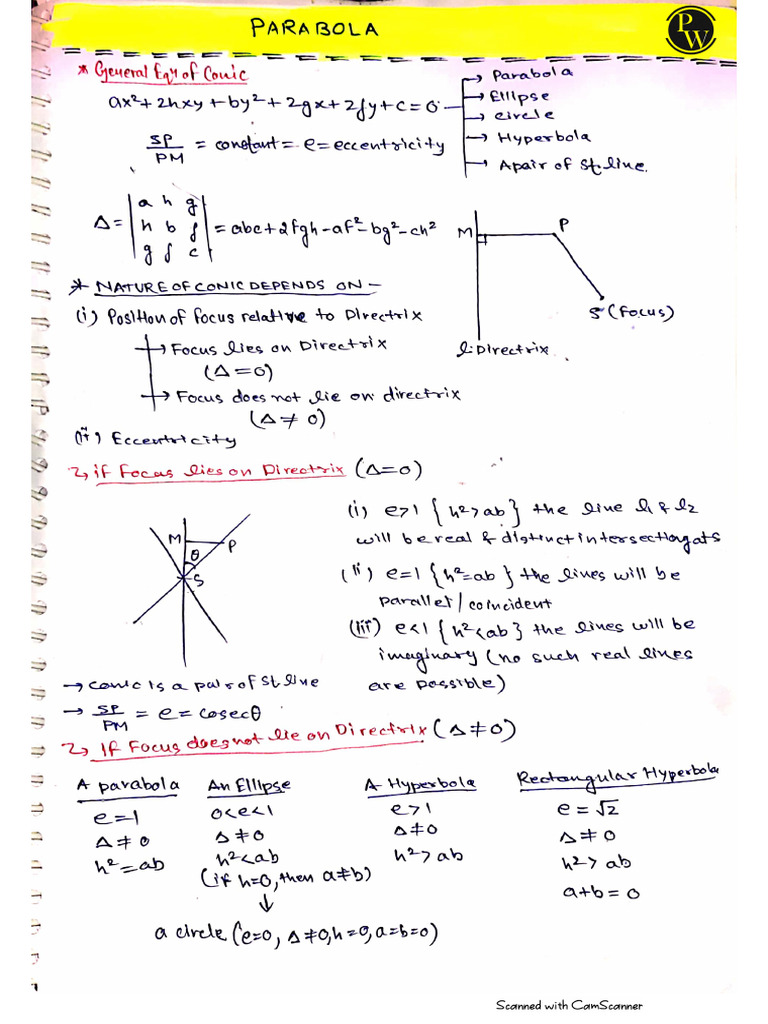 PARABOLA
PW
* General Eqn of Conic
ax²+2hxy+by²+2gx+2fy+c=0
→ Parabola
→ Ellipse
→ circle
→ Hyperbola
→ A pair of St. line.
SP/PM = constant = e = eccentricity
Δ = | a h g |
| h b f | = abc+2fgh-af²-bg²-ch²
| g f c |
M P
S (Focus)
l: Directrix
* NATURE OF CONIC DEPENDS ON -
(i) Position of focus relative to Directrix
→ Focus lies on Directrix
(Δ=0)
→ Focus does not lie on directrix
(Δ≠0)
(ii) Eccentricity
if Focus lies on Directrix (Δ=0)
M P
θ
S
(i) e>1 {h²>ab} the line l₁ & l₂
will be real & distinct intersecting at S
(ii) e=1 {h²=ab} the lines will be
parallel/coincident
(iii) e<1 {h²<ab} the lines will be
imaginary (no such real lines
are possible)
→ conic is a pair of St line
→ SP/PM = e = cosecθ
If Focus does not lie on Directrix (Δ≠0)
A parabola
e=1
Δ≠0
h²=ab
An Ellipse
0<e<1
Δ≠0
h²<ab
(if h=0, then a≠b)
↓
a circle (e=0, Δ≠0, h=0, a=b=0)
A Hyperbola
e>1
Δ≠0
h²>ab
Rectangular Hyperbola
e=√2
Δ≠0
h²>ab
a+b=0
Scanned with CamScanner